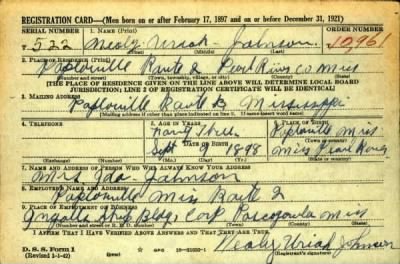 REGISTRATION CARD—(Men born on or after February 17, 1897 and on or before December 31, 1921)
SERIAL NUMBER 1. NAME (Print) ORDER NUMBER
522 Wealy Uriah Johnson 12961
(First) (Middle) (Last)
2. PLACE OF RESIDENCE (Print)
Poplarville Route 2 Pearl River Co Miss
(Number and street) (Town, township, village, or city) (County) (State)
[THE PLACE OF RESIDENCE GIVEN ON THE LINE ABOVE WILL DETERMINE LOCAL BOARD
JURISDICTION; LINE 2 OF REGISTRATION CERTIFICATE WILL BE IDENTICAL]
3. MAILING ADDRESS
Poplarville Route 2 Mississippi
[Mailing address if other than place indicated on line 2. If same insert word same]
4. TELEPHONE 5. AGE IN YEARS 6. PLACE OF BIRTH
Forty Three Poplarville Miss
DATE OF BIRTH (Town or county)
Sept 9 1898 Miss Pearl River
(Exchange) (Number) (Mo.) (Day) (Yr.) (State or country)
7. NAME AND ADDRESS OF PERSON WHO WILL ALWAYS KNOW YOUR ADDRESS
Mrs Ida Johnson
8. EMPLOYER'S NAME AND ADDRESS
Poplarville Miss Route 2
9. PLACE OF EMPLOYMENT OR BUSINESS
Ingalls Ship Bldg. Corp Pascagoula Miss
(Number and street or R. F. D. number) (Town) (County) (State)
I AFFIRM THAT I HAVE VERIFIED ABOVE ANSWERS AND THAT THEY ARE TRUE.
D. S. S. Form 1
(Revised 4-1-42) GPO Wealy Uriah Johnson